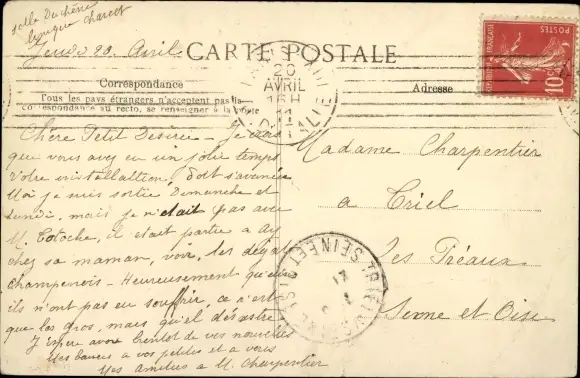 villa Duchêne
Jeudi 20 Avril
CARTE POSTALE
Correspondance
Tous les pays étrangers n'acceptent pas la
correspondance au recto, se renseigner à la Poste
Adresse
20
AVRIL
16H
11
POSTES
10
Chère Petit Desirée - Je vois
que vous avez eu un jolie temps
Votre installation, doit s'avancer
Moi je suis sortie Dimanche et
Lundi, mais je n'était pas avec
M. Totoche, il etait partie a Ay
chez sa maman, voir, les degat
champenois - Heureusement qu'eux
ils n'ont pas eu souffrir, ce n'est
que les gros, mais quel désastre
J'espere avoir bientot de vos nouvelles
Mes baisers a vos petites et a vous
Mes Amitiés a M. Charpentier
Madame Charpentier
a Triel
Les Préaux
Seine et Oise
TRIEL
SEINE ET OISE
21